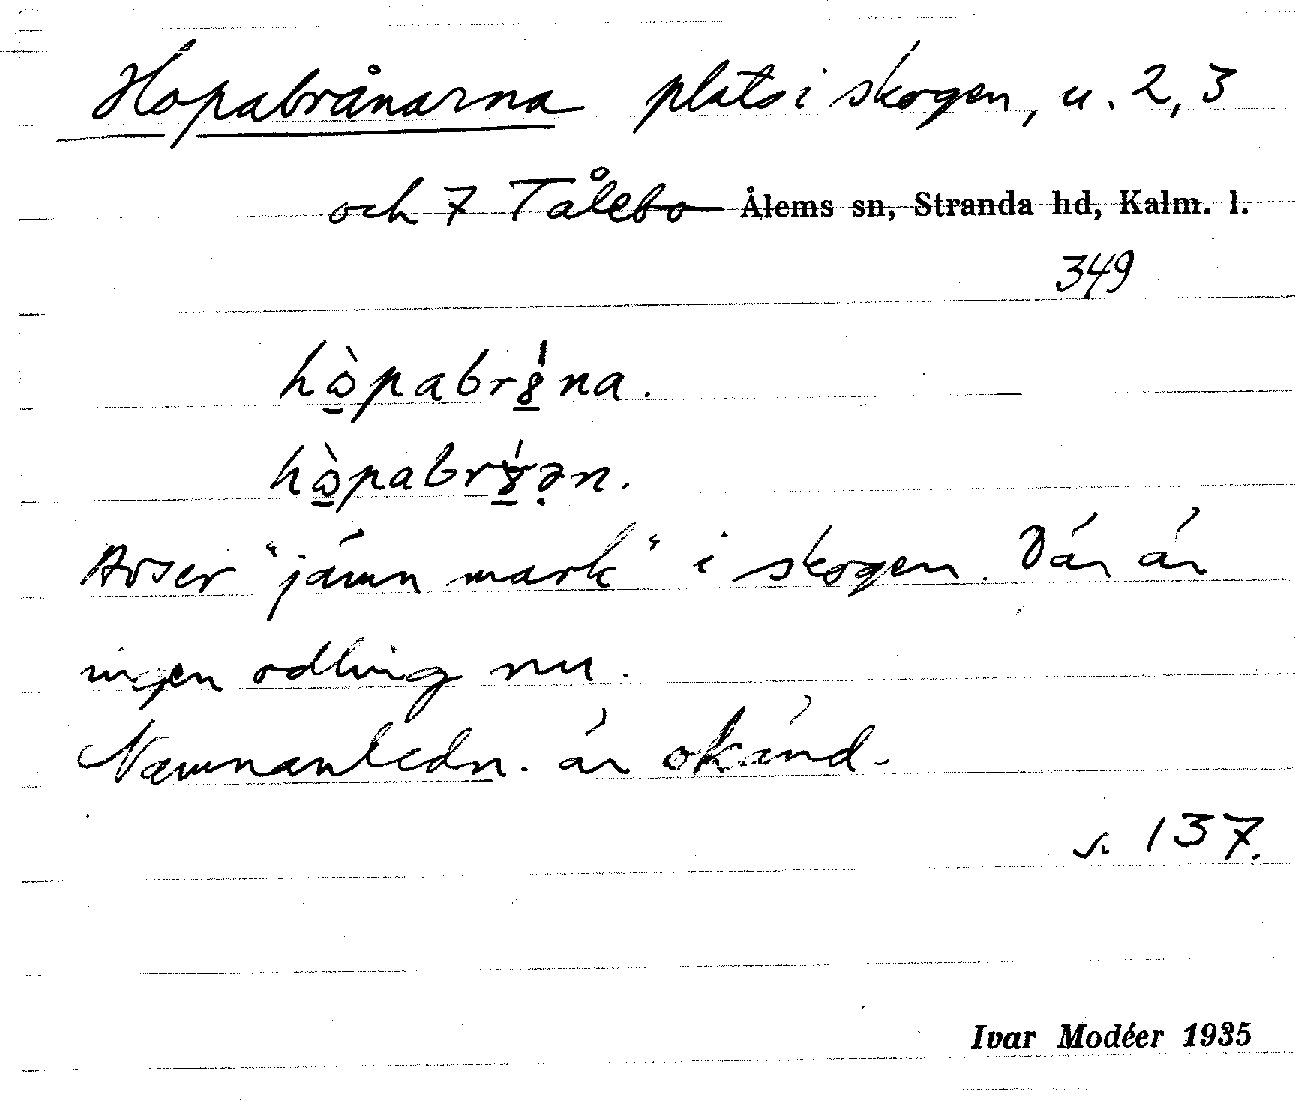 Hopabrånarna plats i skogen, u. 2, 3
och 7 Tålebo Ålems sn, Stranda hd, Kalm. l.
349
hò̲pabr8̲́na.
hò̲pabr8̲́ə̣n.
Avser "jämn mark" i skogen. Där är
ingen odling nu.
Namnanledn. är okänd.
s. 137.
Ivar Modéer 1935